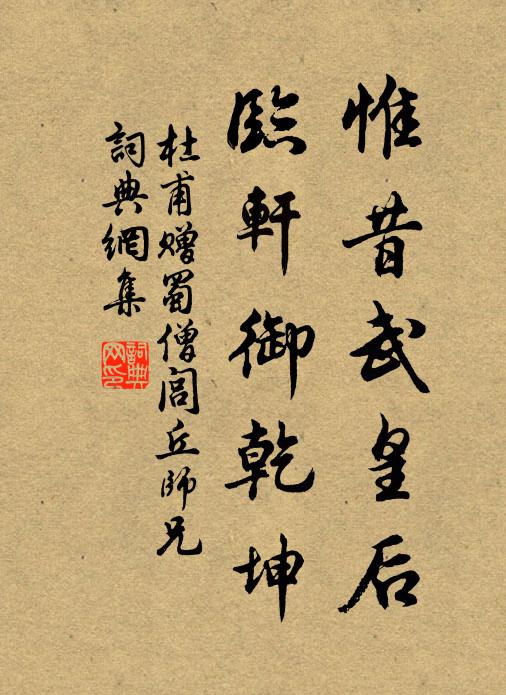 惟昔武皇后
臨軒御乾坤
杜甫贈蜀僧閭丘師兄
詞典網集
詞典網印